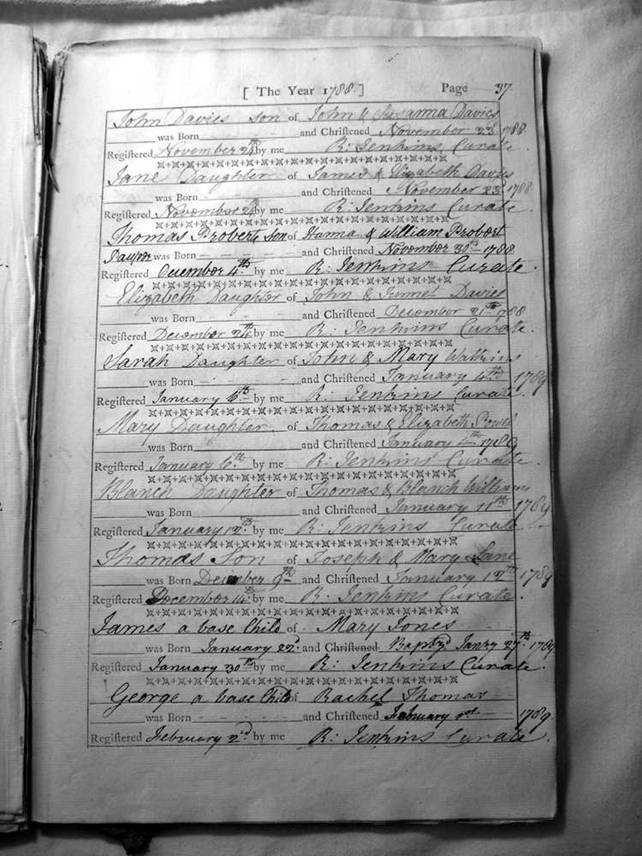 [ The Year 1788. ] Page 37
John Davies son of John & Susanna Davies
was Born and Christened November 23 1788
Registered November 24th by me R: Jenkins Curate.
Jane Daughter of James & Elizabeth Davies
was Born and Christened November 23 1788
Registered November 24 by me R: Jenkins Curate.
Thomas Probert son of Hanna & William Probert
Pauper was Born and Christened November 30th 1788
Registered December 4th by me R: Jenkins Curate.
Elizabeth Daughter of John & Davies
was Born and Christened December 21st 1788
Registered December 24th by me R: Jenkins Curate.
Sarah Daughter of John & Mary Watkins
was Born and Christened January 4th 1789
Registered January 6th by me R: Jenkins Curate.
Mary Daughter of Thomas & Elizabeth
was Born and Christened January 1789
Registered January 6th by me R: Jenkins Curate.
Blanch Daughter of Thomas & Blanch Williams
was Born and Christened January 11th 1789
Registered January 12th by me R: Jenkins Curate
Thomas Son of Joseph & Mary Lane
was Born December 9th and Christened January 12th 1789
Registered December by me R: Jenkins Curate.
James a base Child of Mary Jones
was Born January 22d and Christened Baptzd Janry 27th 1789
Registered January 30th by me R: Jenkins Curate.
George a base Child of Rachel Thomas
was Born and Christened February 1789
Registered February 2d by me R: Jenkins Curate.